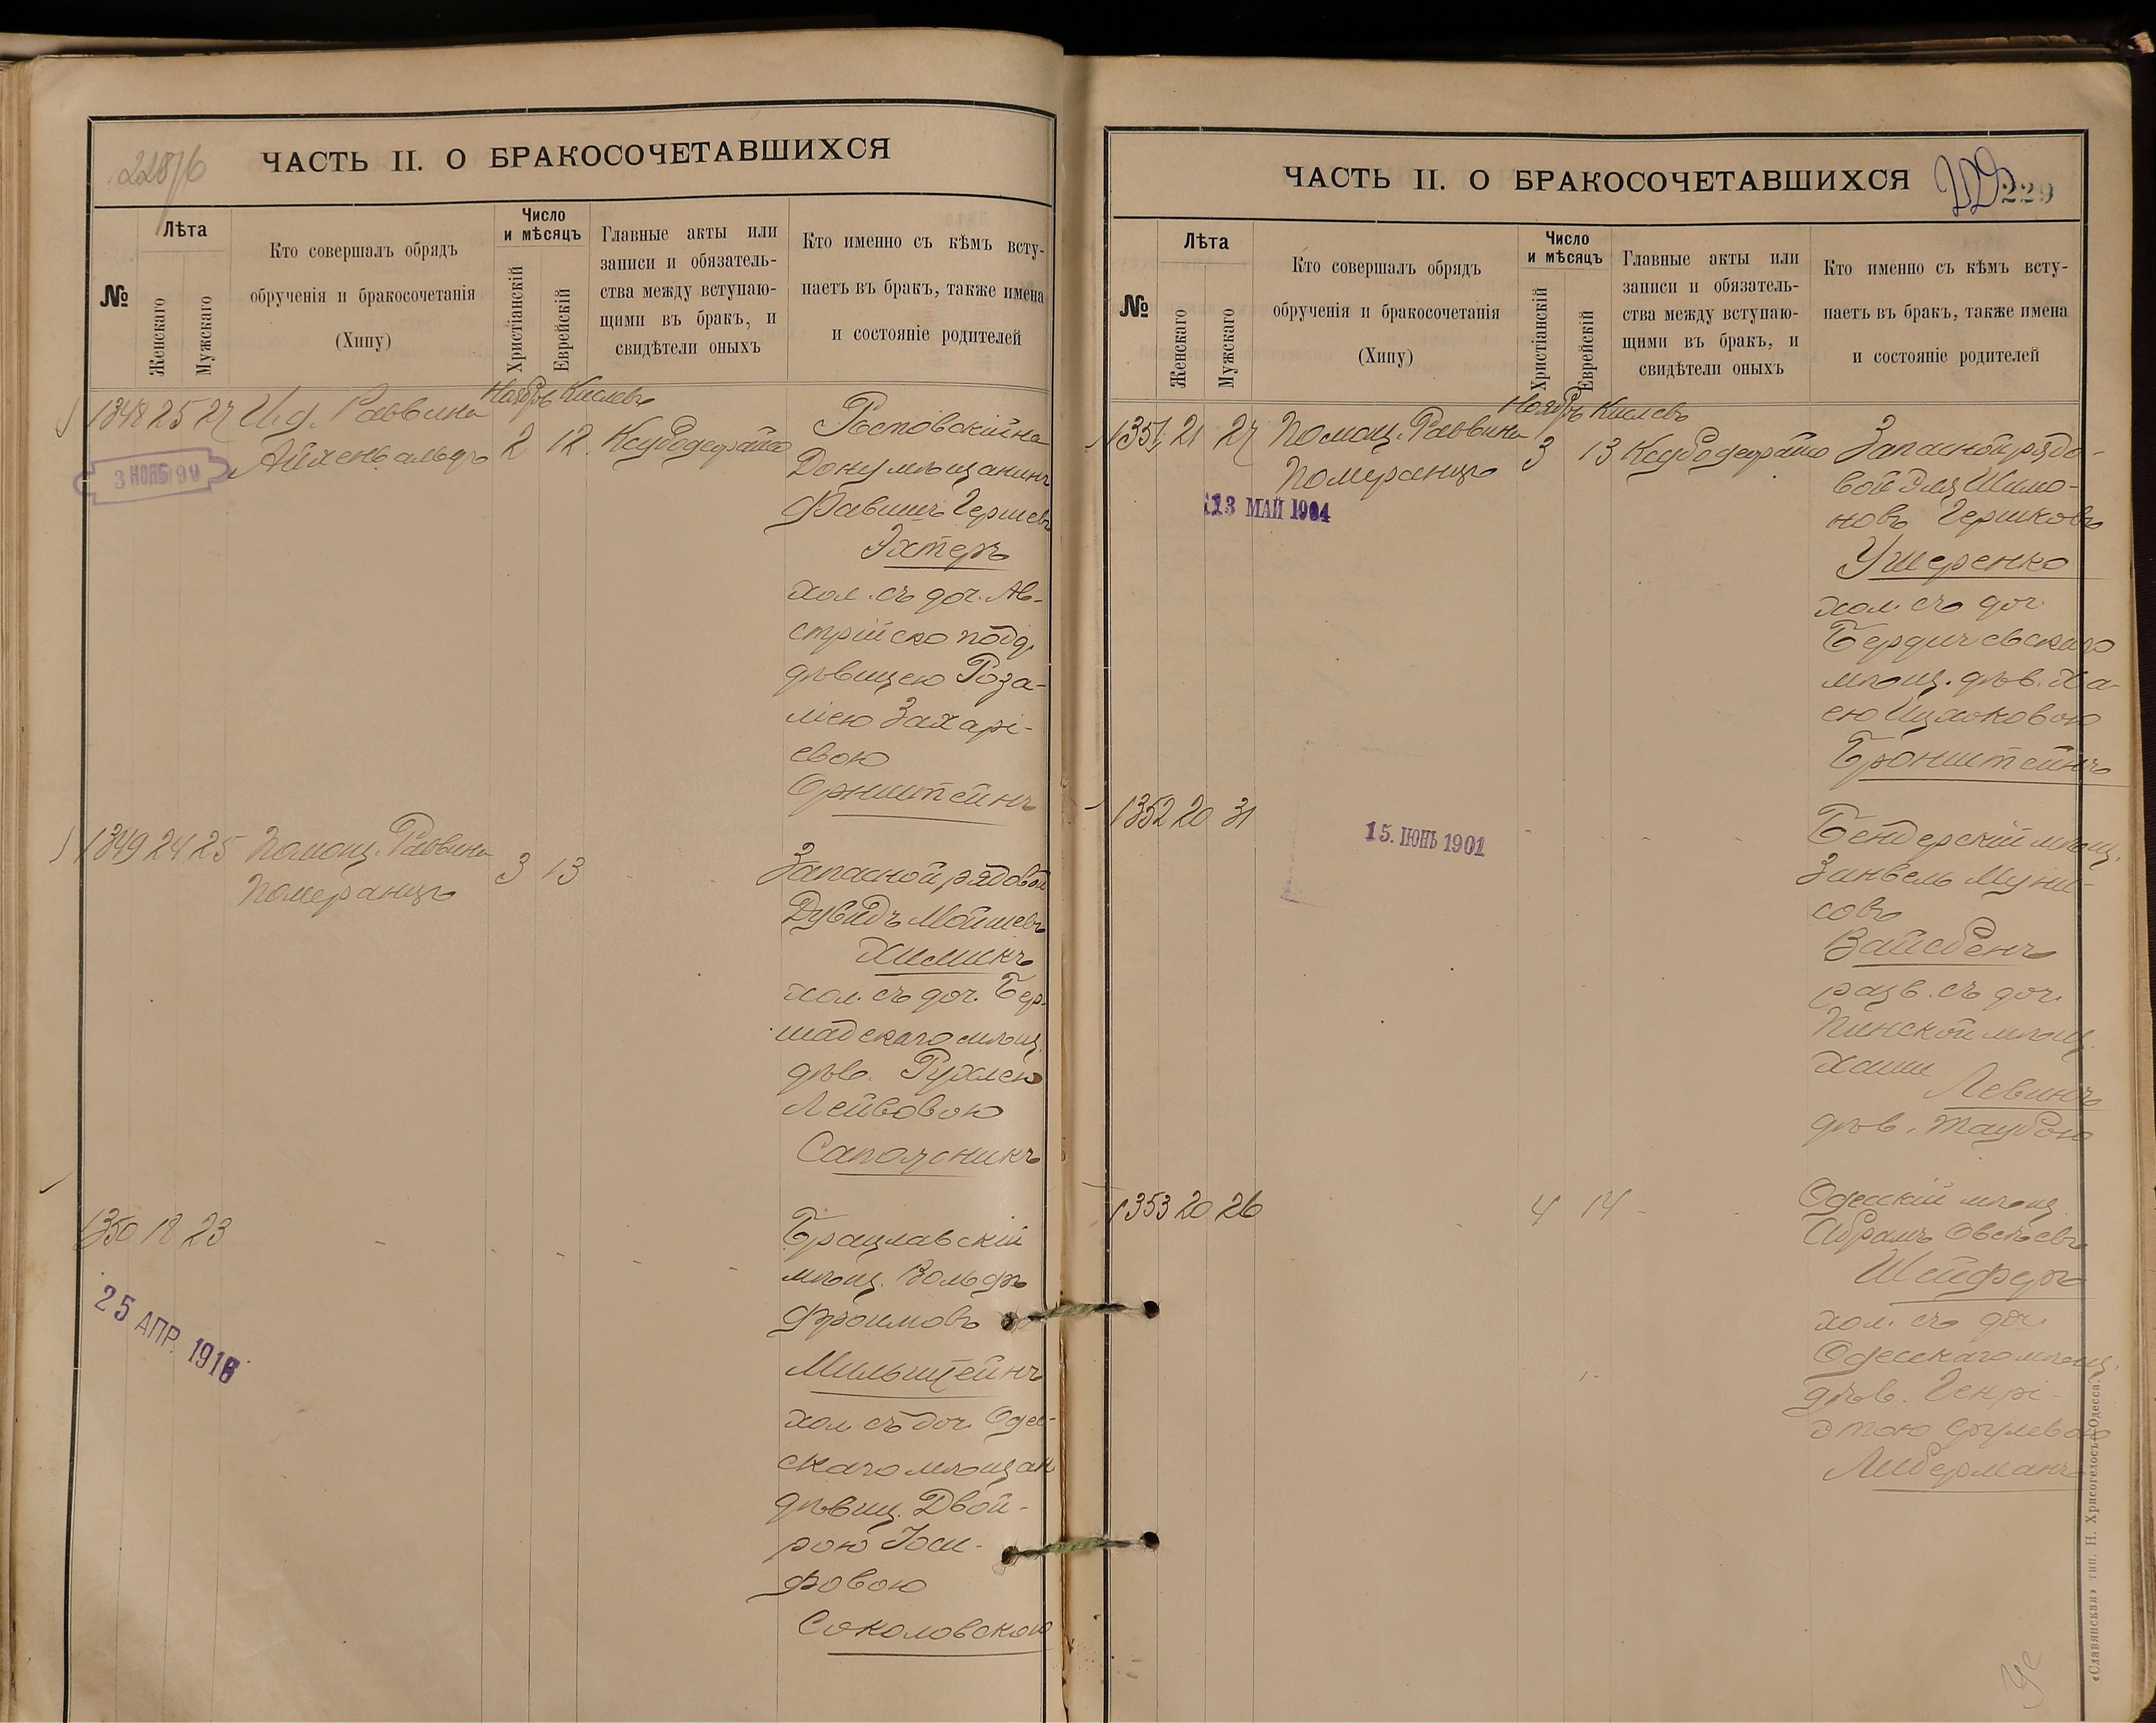 228/б
ЧАСТЬ II. О БРАКОСОЧЕТАВШИХСЯ
№
Лѣта
Женскаго
Мужскаго
Кто совершалъ обрядъ
обрученія и бракосочетанія
(Хипу)
Число
и мѣсяцъ
Христіанскій
Еврейскій
Главные акты или
записи и обязатель-
ства между вступаю-
щими въ бракъ, и
свидѣтели оныхъ
Кто именно съ кѣмъ всту-
паетъ въ бракъ, также имена
и состояніе родителей
Ноябрь Кислевъ
1348 25 27 И.д. Раввина
Айхенвальдъ 2 12 Ксубодеорайто
3 НОЯБ 99
Ростовскій на
Дону мѣщанинъ
Файвишъ Гершевъ
Эхтеръ
хол. съ доч. Ав-
стрійско подд.
дѣвицею Роза-
ліею Захарі-
евою
Орнштейнъ
1349 24 25 Помощ. Раввина
Померанцъ 3 13 - -
Запасной рядовой
Дувидъ Мойшевъ
Химикъ
хол. съ доч. Бер-
шадскаго мѣщ.
дѣв. Рухлею
Лейбовою
Сапожникъ
1350 18 23 - - - - -
25 АПР. 1916
Брацлавскій
мѣщ. Вольфъ
Фроимовъ
Мильштейнъ
хол. съ доч. Одес-
скаго мѣщан
дѣвиц. Двой-
рою Іоси-
фовою
Соколовскою
ЧАСТЬ II. О БРАКОСОЧЕТАВШИХСЯ
229
№
Лѣта
Женскаго
Мужскаго
Кто совершалъ обрядъ
обрученія и бракосочетанія
(Хипу)
Число
и мѣсяцъ
Христіанскій
Еврейскій
Главные акты или
записи и обязатель-
ства между вступаю-
щими въ бракъ, и
свидѣтели оныхъ
Кто именно съ кѣмъ всту-
паетъ въ бракъ, также имена
и состояніе родителей
Ноябрь Кислевъ
1351 21 27 Помощ. Раввина
Померанцъ 3 13 Ксубодеорайто
13 МАЙ 1904
Запасной рядо-
вой Эля Шимо-
новъ Гершковъ
Ушеренко
хол. съ доч.
Бердичевскаго
мѣщ. дѣв. Ха-
ею Ицховою
Бронштейнъ
1352 20 31 - - -
15. ІЮНЬ 1901
Бендерскій мѣщ.
Занвель Муни-
совъ
Вайсбенъ
разв. съ доч.
Пинской мѣщ.
Хаши
Левинъ
дѣв. Таубою
1353 20 26 - 4 14 - -
Одесскій мѣщ.
Абрамъ Овсѣевъ
Шейферъ
хол. съ доч.
Одесскаго мѣщ.
дѣв. Генрі-
этою Срулевою
Либерманъ
«Славянская» тип. Н. Хрисогелосъ, Одесса.